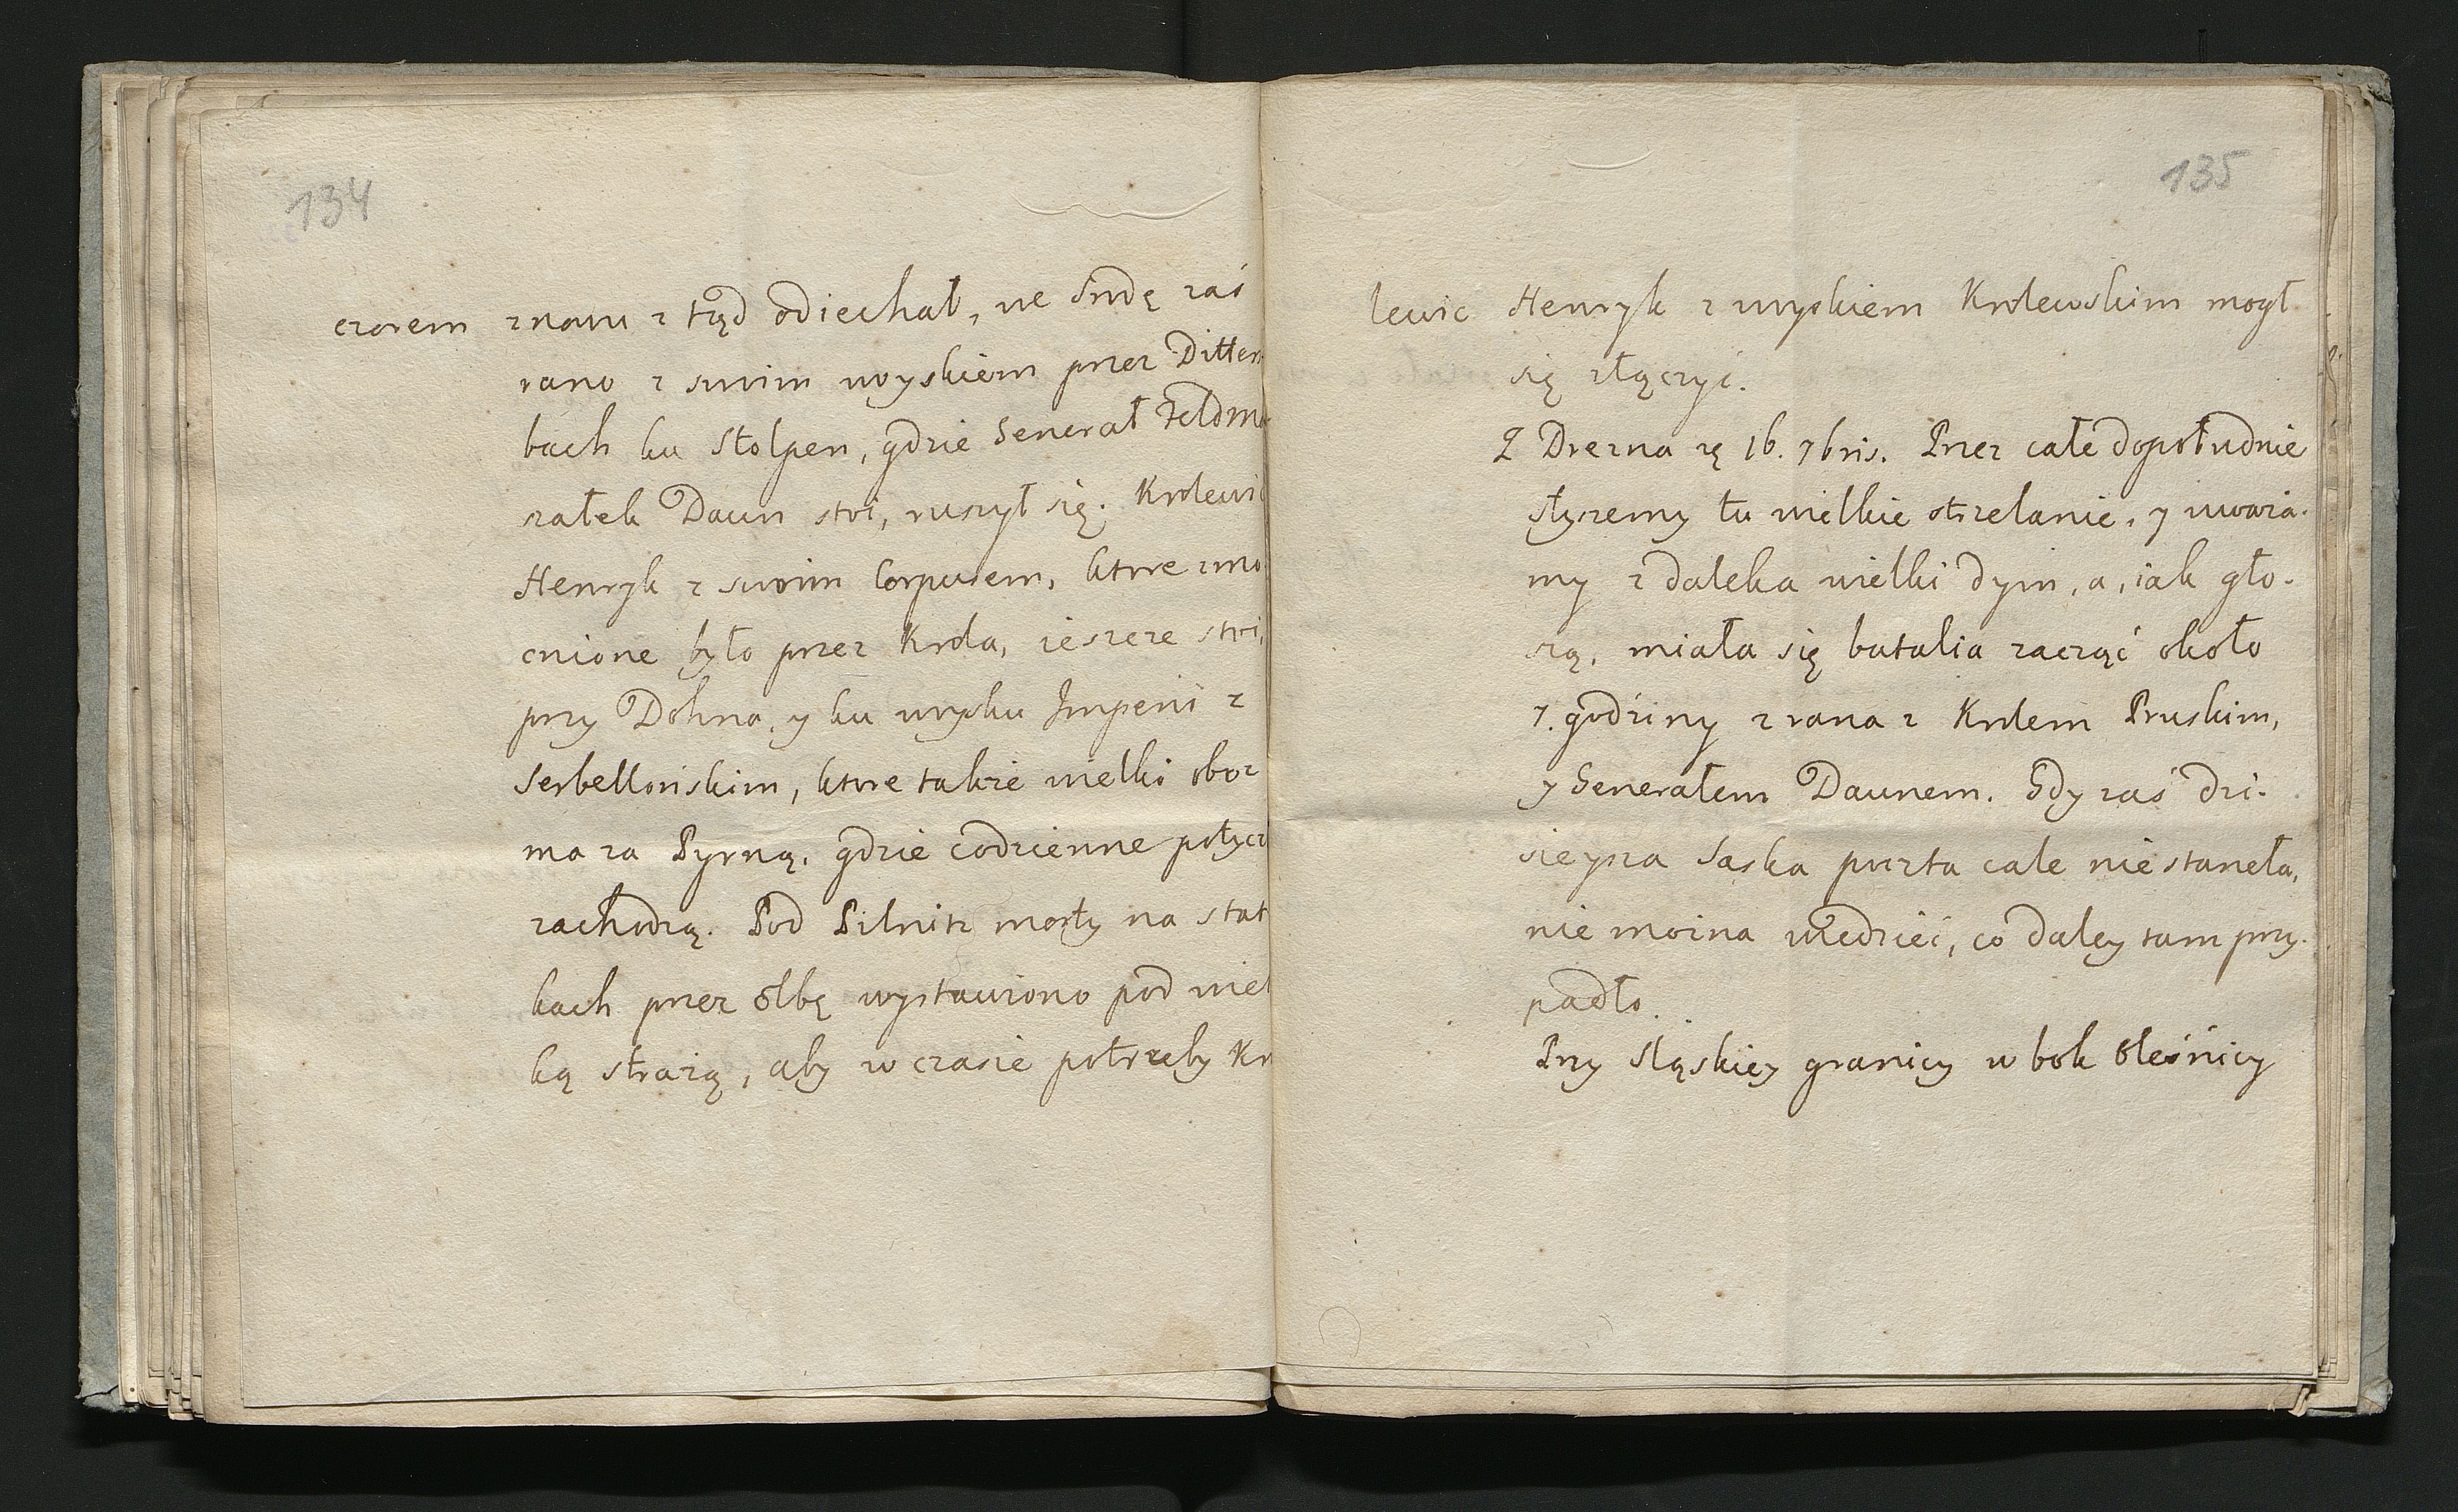 134
czorem znowu z tąd odiechał, we Srodę zaś
rano z swoim woyskiem przez Ditter
bach ku Stolpen, gdzie Generał Feldma
szałek Daun stoi, ruszył się. Krolewi
Henryk z swoim Corpusem, ktore zmo
cnione było przez Krola, ieszcze stoi,
przy Dohna, y ku woysku Imperii z
Serbellońskim, ktore także wielki oboz
ma za Pyrną, gdzie codzienne potycz
zachodzą. Pod Pilnitz mosty na stat
kach przez Elbę wystawiono pod wiel
ką strażą, aby w czasie potrzeby Kr
135
lewic Henryk z woyskiem Krolewskim mogł
się złączyć.
Z Drezna zę 16. 7bris. Przez całe dopołudnie
słyszemy tu wielkie strzelanie, y uważa-
my z daleka wielki dym, a, iak gło-
szą, miała się batalia zacząć około
7. godziny z rana z Krolem Pruskim,
y Generałem Daunem. Gdy zaś dzi-
sieysza Saska poczta cale nie staneła,
nie można wiedzieć, co daley tam przy-
padło.
Przy Sląskiey granicy w bok Oleśnicy